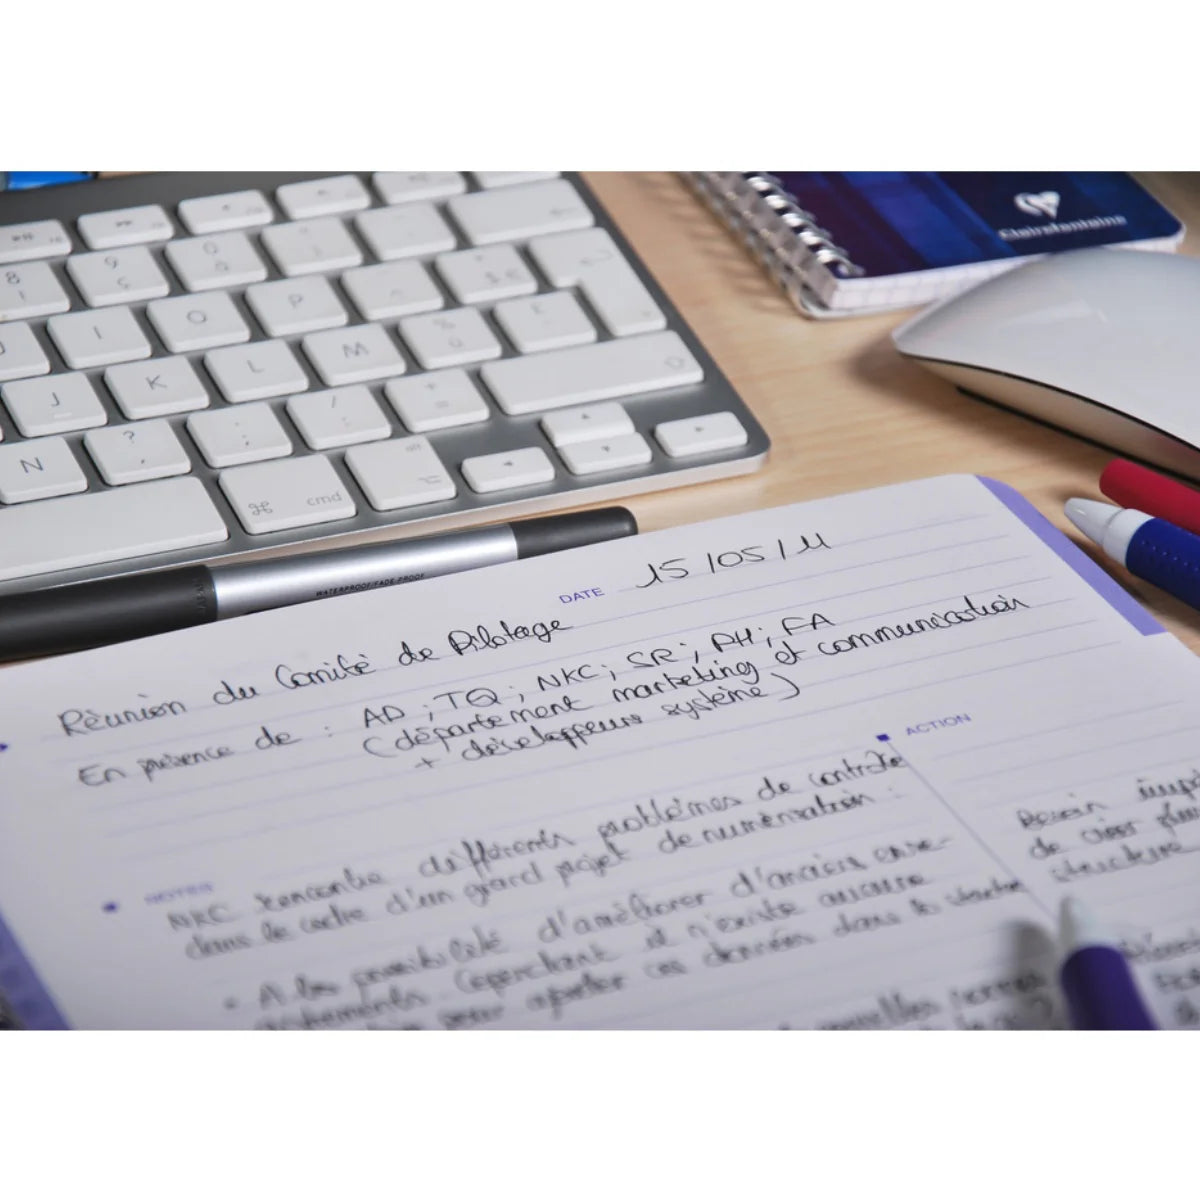 Clairefontaine
8
9
ç
O
P
I
O
J
K
L
M
N
?
,
;
/
:
+
=
alt
⌘ cmd
WATERPROOF/FADE-PROOF
DATE 15/05/11
Réunion du Comité de Pilotage
En présence de : AD ; TQ ; NKC ; SR ; PH ; FA
(département marketing et communication
+ développeurs système)
NOTES
NKC rencontre différents problèmes de contrôle
dans le cadre d'un grand projet de numérisation :
• A la possibilité d'améliorer d'anciens enre-
gistrements. Cependant il n'existe aucune
pour ajouter ces données dans la
nouvelles normes
ACTION
Besoin
de créer
structure